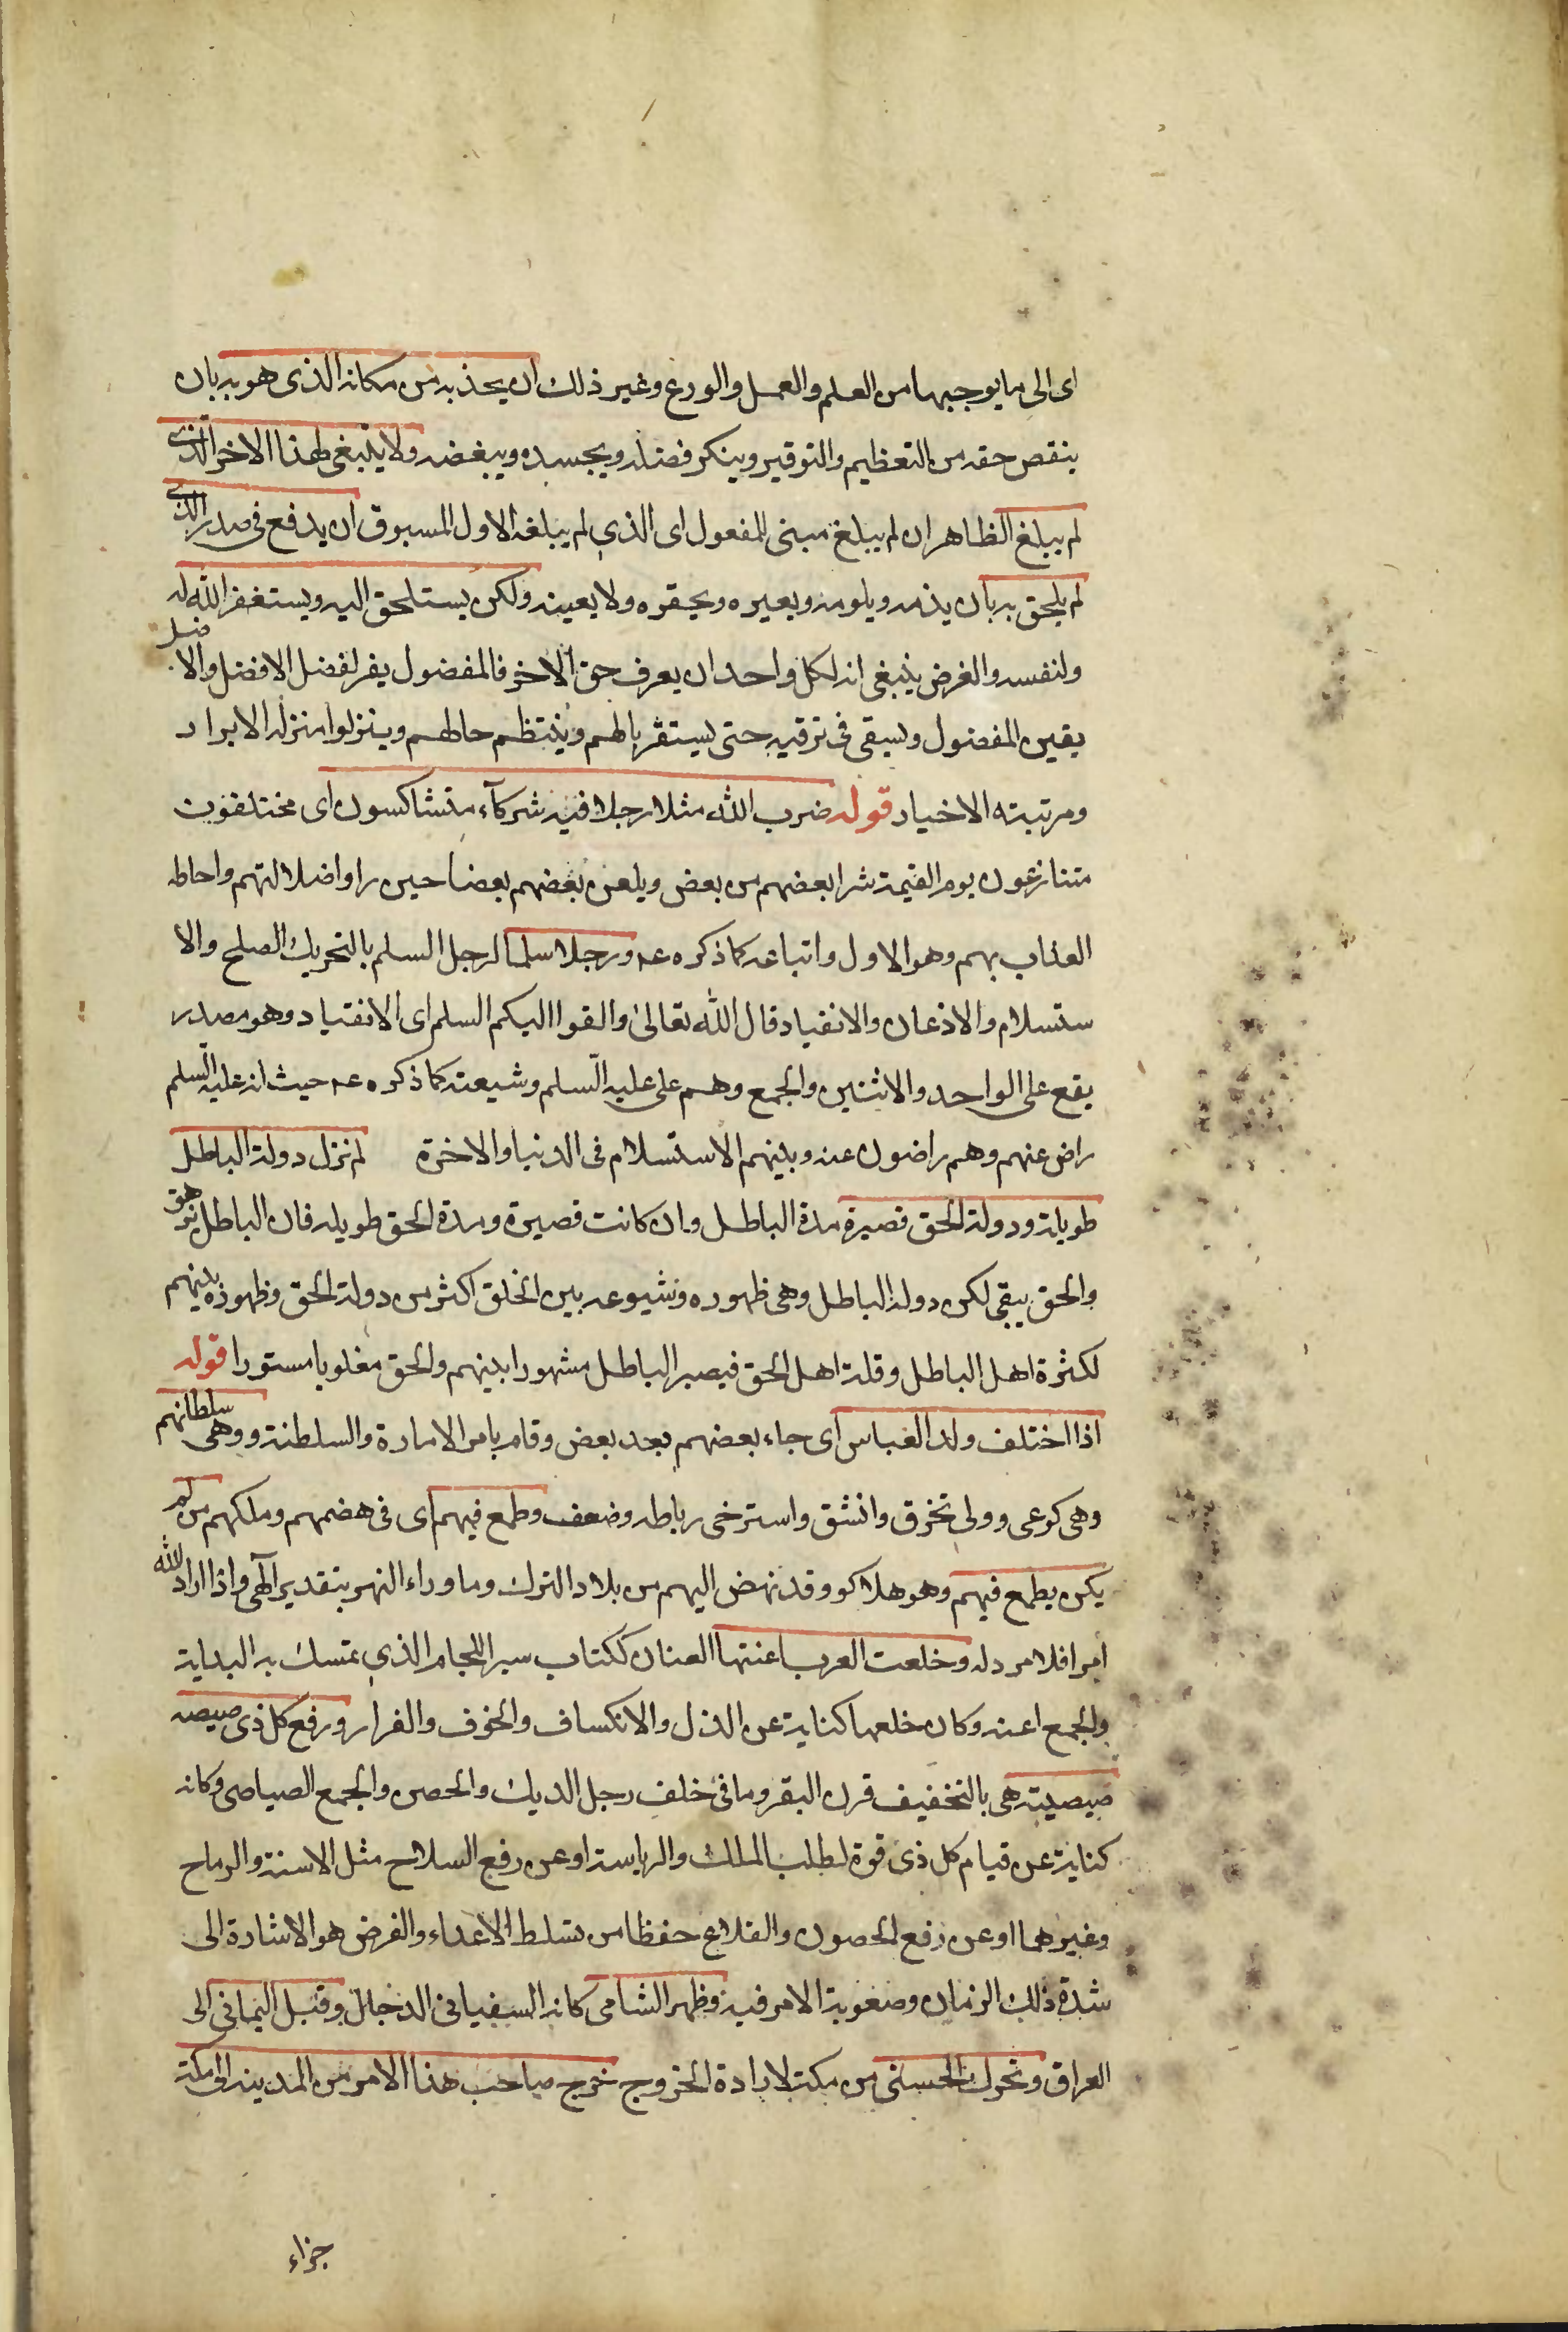 اى الى ما يوجبها من العلم والعمل والورع وغير ذلك ان يجذبه من مكانه الذى هو به بان
ينقص حقه من التعظيم والتوقير وينكر فضله ويحسده ويبغضه ولا ينبغى لهذا الاخر الذى
لم يبلغ الظاهر ان لم يبلغ مبنى للمفعول اى الذى لم يبلغه الاول المسبوق ان يدفع فى صدر الذى
لم يلحق به بان يذمه ويلومه ويعيره ويحقره ولا يعينه ولكن يستلحق اليه ويستغفر الله له
ولنفسه والغرض ينبغى انه لكل واحد ان يعرف حق الاخر فالمفضول يقر لفضل الافضل والافضل
يقين المفضول ويسقى فى ترقيه حتى يستقر بالهم وينتظم حالهم وينزلوا منزله الابرار
ومرتبته الاخيار قوله ضرب الله مثلا رجلا فيه شركآء متشاكسون اى مختلفون
متنازعون يوم القيمة شرا بعضهم من بعض ويلعن بعضهم بعضا حين راوا ضلالتهم واحاطه
العذاب بهم وهو الاول واتباعه كما ذكره عه ورجلا سلما لرجل السلم بالتحريك الصلح والا
ستسلام والاذعان والانقياد قال الله تعالى والقوا اليكم السلم اى الانقياد وهو مصدر
يقع على الواحد والاثنين والجمع وهم على عليه السلم وشيعته كما ذكره عه حيث انه عليه السلم
راض عنهم وهم راضون عنه وبينهم الاستسلام فى الدنيا والاخرة لم تزل دولة الباطل
طويلة ودولة الحق قصيرة مدة الباطل وان كانت قصيرة ومدة الحق طويله فان الباطل يزهق
والحق يبقى لكن دوله الباطل وهى ظهوره وشيوعه بين الخلق اكثر من دولة الحق وظهوره بينهم
لكثرة اهل الباطل وقلة اهل الحق فيصير الباطل مشهورا بينهم والحق مغلوبا مستورا قوله
اذا اختلف ولد العباس اى جاء بعضهم بعد بعض وقام بامر الامارة والسلطنة ووهى سلطانهم
وهى كوعى وولى تخرق وانشق واسترخى رباطه وضعف وطمع فيهم اى فى هضمهم وملكهم من لم
يكن يطمع فيهم وهو هلاكو وقد نهض اليهم من بلاد الترك وما وراء النهر بتقدير آلهى واذا اراد الله
امرا فلا مرد له وخلعت العرب اعنتها العنان ككتاب سير اللجام الذى تمسك به البداية
والجمع اعنه وكان خلعها كناية عن الذل والانكساف والخوف والفرار ورفع كل ذى صيصه
صيصيته هى بالتخفيف قرن البقر وما فى خلف رجل الديك والحصن والجمع الصياصى وكانه
كناية عن قيام كل ذى قوة لطلب الملك والرياسة او عن رفع السلاح مثل الاسنة والرماح
وغيرهما او عن رفع الحصون والقلاع حفظا من تسلط الاعداء والغرض هو الاشارة الى
شدة ذلك الزمان وصعوبة الامر فيه وظهر الشامى كانه السفيانى الدجال وقبل اليمانى الى
العراق وتحرك الحسنى من مكة لارادة الخروج خرج صاحب هذا الامر من المدينه الى مكة
جزاء